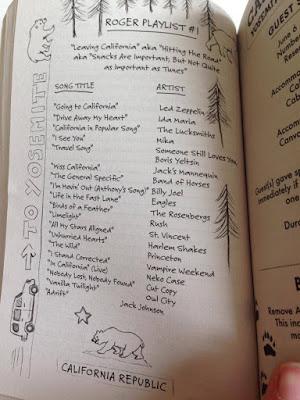 ROGER PLAYLIST #1
"Leaving California" aka "Hitting the Road"
aka "Snacks Are Important, But Not Quite
as Important as Tunes"
SONG TITLE ARTIST
"Going to California" Led Zeppelin
"Drive Away My Heart" Ida Maria
"California in Popular Song" The Lucksmiths
"I See You" Mika
"Travel Song" Someone Still Loves You
Boris Yeltsin
"Miss California" Jack's Mannequin
"The General Specific" Band of Horses
"I'm Movin' Out (Anthony's Song)" Billy Joel
"Life in the Fast Lane" Eagles
"Birds of a Feather" The Rosenbergs
"Limelight" Rush
"All My Stars Aligned" St. Vincent
"Unhurried Hearts" Harlem Shakes
"The Wild" Princeton
"I Stand Corrected" Vampire Weekend
"In California" (Live) Neko Case
"Nobody Lost, Nobody Found" Cut Copy
"Vanilla Twilight" Owl City
"Adrift" Jack Johnson
CALIFORNIA REPUBLIC
TO YOSEMITE
CA
YOSEMIT
June 6
Numbe
Res
Accomm
Ca
Accom
Canv
Guest(s) gave sp
immediately
one
Dura
B
Remove A
This inc
mo